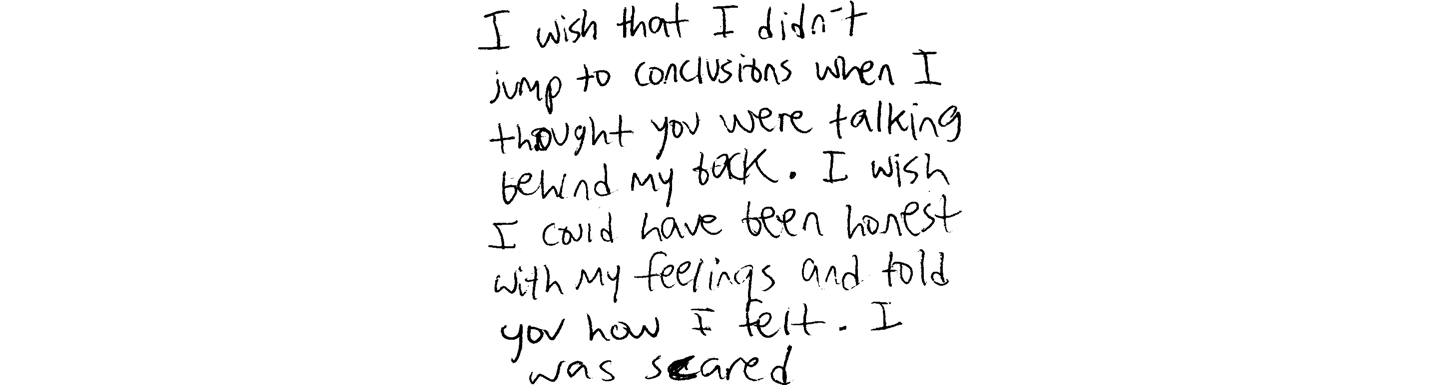 I wish that I didn't
jump to conclusions when I
thought you were talking
behind my back. I wish
I could have been honest
with my feelings and told
you how I felt. I
was scared